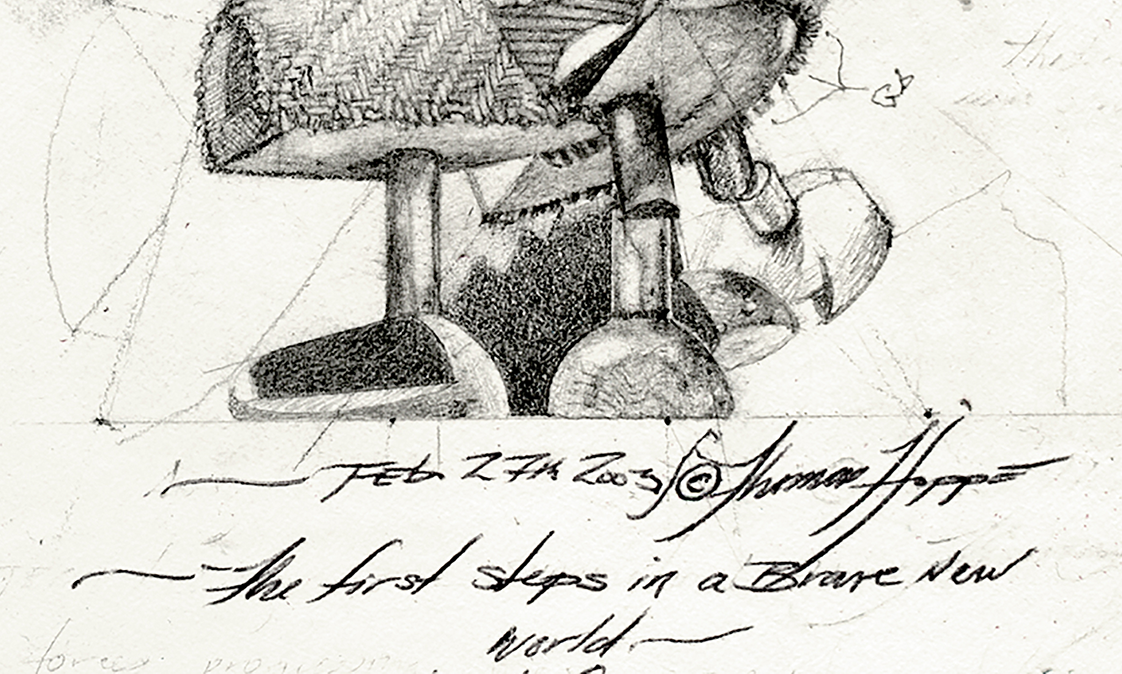 Feb 27th 2003 © Thomas Hoppe
The first steps in a Brave New
World